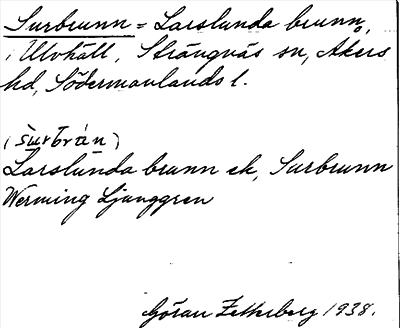 Surbrunn = Larslunda brunn,
i Ulvhäll, Strängnäs sn, Åkers
hd, Södermanlands l.
(surbrun)
Larslunda brunn ek, Surbrunn
Werming Ljunggren
Göran Zetterberg 1938.